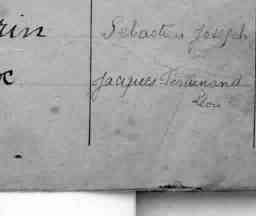 rin Sebastien Joseph
oc Jacques Ferdinand
Léon